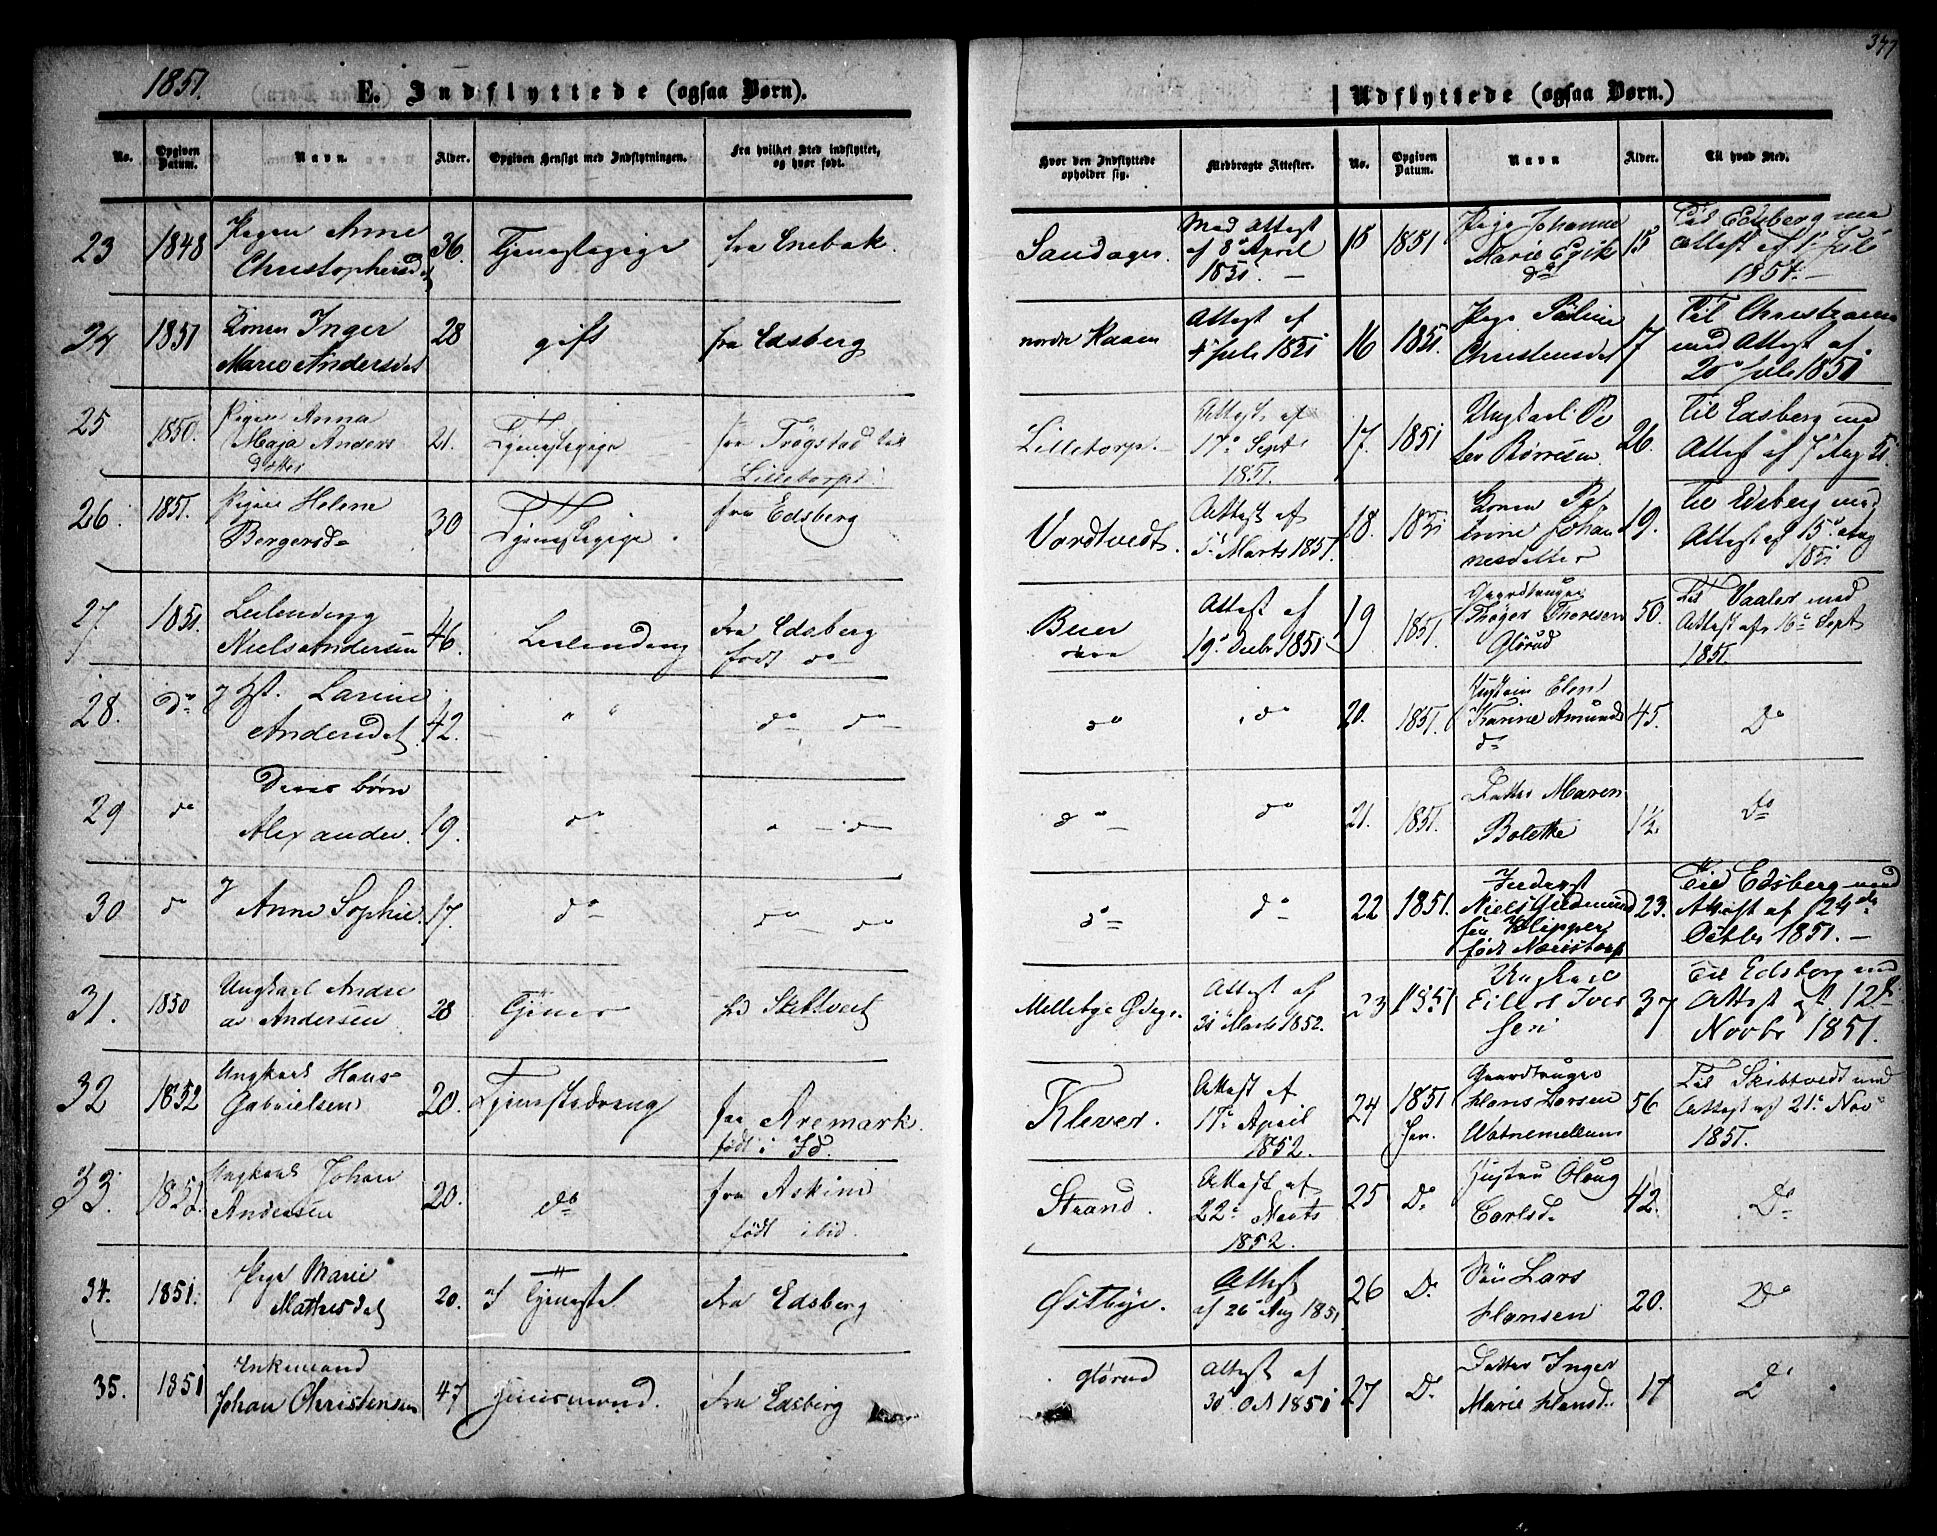 1851.
E. Indflyttede (ogsaa Børn).
No.
Opgiven Datum.
Navn.
Alder.
Opgiven Hensigt med Indflytningen.
Fra hvilket Sted indflyttet, og hvor født.
23
1848
Pigen Anne
Christophersd
36.
Tjenestepige
fra Enebak.
24
1851
Konen Inger
Marie Andersdat
28
gift
fra Edsberg
25
1850.
Pigen Anna
Maja Anders
dotter
21.
Tjenestepige
fra Trøgstad til
Lilletorp
26.
1851.
Pigen Helene
Bergersd
30
Tjenestepige.
fra Edsberg
27
1851.
Leilending
Niels Andersen
46.
Leilending
Fra Edsberg
født do
28.
do
Larine
Andersdat
42.
" "
do do
29
do
Deres børn
Alexander.
19.
do
" do
30
do
Anne Sophie
17.
do
do do
31.
1850
Ungkarl Andre
as Andersen
28
Tjener
fra Skibtvet
32
1852
Ungkarl Hans
Gabrielsen
20.
Tjenestedreng
fra Aremark.
født i Id.
33.
1852
Ungkarl Johan
Andersen
20.
do
fra Askim
født ibid.
34.
1851.
Pige Marie
Mathisdat
20.
Tjeneste
Fra Edsberg
35.
1851
Enkemand
Johan Christensen
47
Huusmand.
Fra Edsberg
377
Udflyttede (ogsaa Børn.)
Hvor den Indflyttede opholder sig.
Medbragte Attester.
No.
Opgiven Datum.
Navn
Alder.
Til hvad Sted.
Sandager.
Med Attest
af 8de April
1851.
15
1851
Pige Johanne
Marie Erik
da
15
Til Edsberg med
Attest af 1 Juli
1851.
nordre Kaasen
Attest af
4 Juli 1851
16
1851.
Pige Pauline
Christensdat
17
Til Christiania
med Attest af
20 Juli 1851
Lilletorp.
Attest af
17de Septb
1851.
17.
1851
Ungkarl Pe
ter Børresen
26.
Til Edsberg med
Attest af 7 Aug 51.
Vardtvedt.
Attest af
5 Marts 1851.
18.
1851
Konen Pe
trine Johan
nesdatter
19.
Til Edsberg med
Attest af 15de Aug
1851
Buer
Attest af
19de Decbr 1851
19
1851.
Gaardbruger
Thøger Thoresen
Glørud
50.
Til Vaaler med
Attest af 16de Sept
1851.
do
do
20.
1851.
Hustruen Eleni
Karine Amunds
da
45.
Do
do
do
21.
1851.
Datter Maren
Bolette
1½
Do
do
do
22
1851.
Niels Gudmund
sen Klipper
født Næristorp
23.
Til Edsberg med
Attest af 24de
Octbr 1851.
Mellebye Ødeg.
Attest af
31 Marts 1852.
23
1851
Ungkarl
Eilert Iver
sen
37
Til Edsberg med
Attest af 12te
Novbr 1851.
Klever.
Attest af
17de April
1852.
24
1851
Jan.
Gaardbruger
Hans Larsen
Watnemellum
56
Til Skibtvedt med
Attest af 21de Nov
1851.
Strand.
Attest af
22de Marts
1852.
25
Do
Hustru Olaug
Carlsd.
42.
Do
Østbye.
Attest
af 26 Aug 1851
26
Do
Søn Lars
Hansen
20.
Do
Glørud
Attest af
30 Oct 1851
27
Do
Datter Inger
Marie Hansd.
17
Do